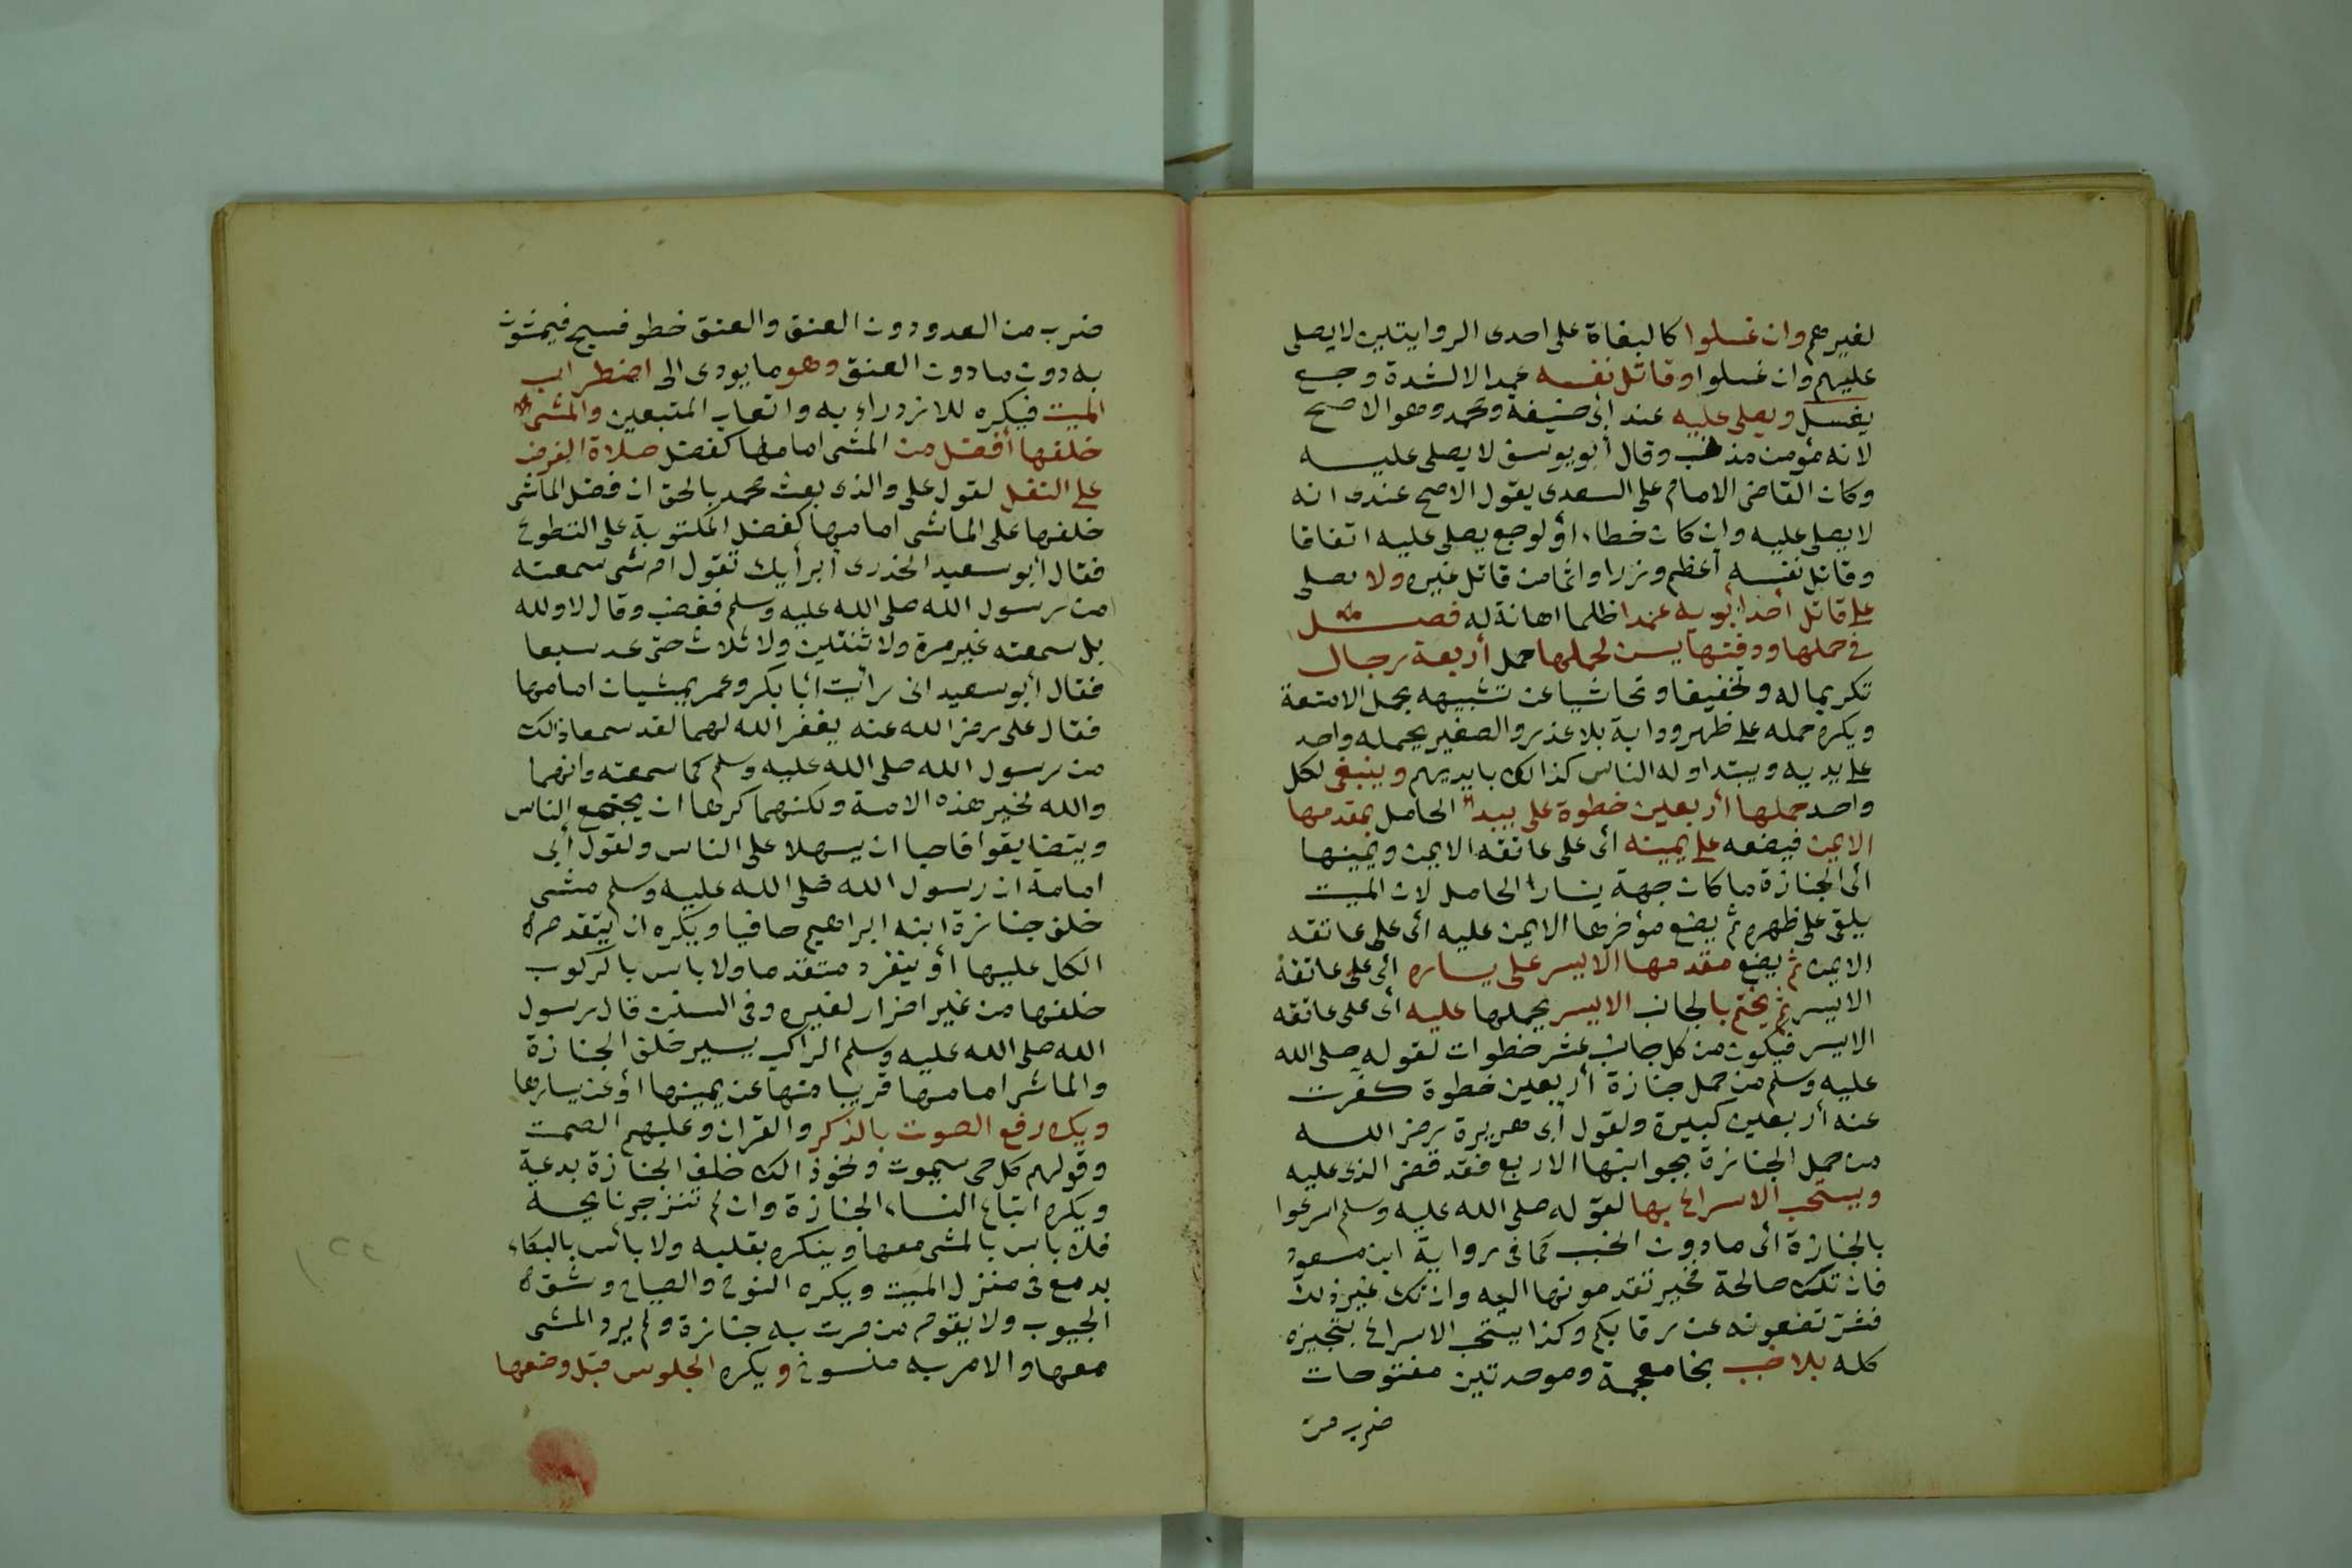 لغيرهم وان غسلوا كالبغاة على احدى الروايتين لا يصلى
عليهم وان غسلوا وقاتل نفسه عمدا لا لشدة وجع
يغسل ويصلى عليه عند أبى حنيفة ومحمد وهو الاصح
لانه مؤمن مذنب وقال أبو يوسف لا يصلى عليه
وكان القاضى الامام على السعدى يقول الاصح عندى انه
لا يصلى عليه وان كان خطاء أو لوجع يصلى عليه اتفاقا
وقاتل نفسه أعظم وزرا واثما من قاتل غيره ولا يصلى
على قاتل أحد أبويه عمدا ظلما اهانة له فصل
فى حملها ودفنها يسن لحملها حمل أربعة رجال
تكريما له وتخفيفا وتحاشيا عن تشبيهه بحمل الامتعة
ويكره حمله على ظهر ودابة بلا عذر والصغير يحمله واحد
على يديه ويبتداوله الناس كذالك بايديهم وينبغى لكل
واحد حملها أربعين خطوة على يبدا الحامل بمقدمها
الايمن فيضعه على يمينه أى على عاتقه الايمن ويمينها
أى الجنازة ما كان جهة يسار الحامل لان الميت
يلقى على ظهره ثم يضع مؤخرها الايمن عليه أى على عاتقه
الايمن ثم يضع مقدمها الايسر على يساره أى على عاتقه
الايسر ثم يختم بالجانب الايسر يحملها عليه أى على عاتقه
الايسر فيكون من كل جانب عشر خطوات لقوله صلى الله
عليه وسلم من حمل جنازة أربعين خطوة كفرت
عنه أربعين كبيرة ولقول أبى هريرة رضى الله
من حمل الجنازة بجوانبها الاربع فقد قضى الذى عليه
ويستحب الاسراع بها لقوله صلى الله عليه وسلم اسرعوا
بالجنازة أى ما دون الخبب كما فى رواية ابن مسعود
فان تك صالحة فخير تقدمونها اليه وان تك غير ذلك
فشر تضعونه عن رقابكم وكذا يستحب الاسراع بتجهيزه
كله بلا خبب بخا معجمة وموحدتين مفتوحات
ضرب من
ضرب من العدو دون العنق والعنق خطو فسيح فيمشون
به دون ما دون العنق وهو ما يودى الى اضطراب
الميت فيكره للازدراء به واتعاب المتبعين والمشى
خلفها أفضل من المشى امامها كفضل صلاة الفرض
على النفل لقول على والذى بعث محمد بالحق ان فضل الماشى
خلفها على الماشى امامها كفضل المكتوبة على التطوع
فقال أبو سعيد الخدرى أبرأيك تقول ام شى سمعته
من رسول الله صلى الله عليه وسلم فغضب وقال لا والله
بل سمعته غير مرة ولا ثنتين ولا ثلاث حتى عد سبعا
فقال أبو سعيد انى رأيت أبا بكر وعمر يمشيان امامها
فقال على رضى الله عنه يغفر الله لهما لقد سمعا ذالك
من رسول الله صلى الله عليه وسلم كما سمعته وانهما
والله لخير هذه الامة ولكنهما كرها ان يجتمع الناس
ويتضايقوا فاحبا ان يسهلا على الناس ولقول أبى
امامة ان رسول الله صلى الله عليه وسلم مشى
خلف جنازة ابنه ابراهيم حافيا ويكره ان يتقدم
الكل عليها أو ينفرد متقدما ولا باس بالركوب
خلفها من غير اضرار لغيره وفى السنن قال رسول
الله صلى الله عليه وسلم الراكب يسير خلف الجنازة
والماشى امامها قريبا منها عن يمينها أو عن يسارها
ويكره رفع الصوت بالذكر والقران وعليهم الصمت
وقولهم كل حى سيموت ونحو ذالك خلف الجنازة بدعة
ويكره اتباع النساء الجنازة وان لم تنزجر نايحة
فلا باس بالمشى معها وينكره بقلبه ولا بأس بالبكاء
بدمع فى منزل الميت ويكره النوح والصياح وشق
الجيوب ولا يقوم من مرت به جنازة ولم يرد المشى
معها والامر به منسوخ ويكره الجلوس قبل وضعها